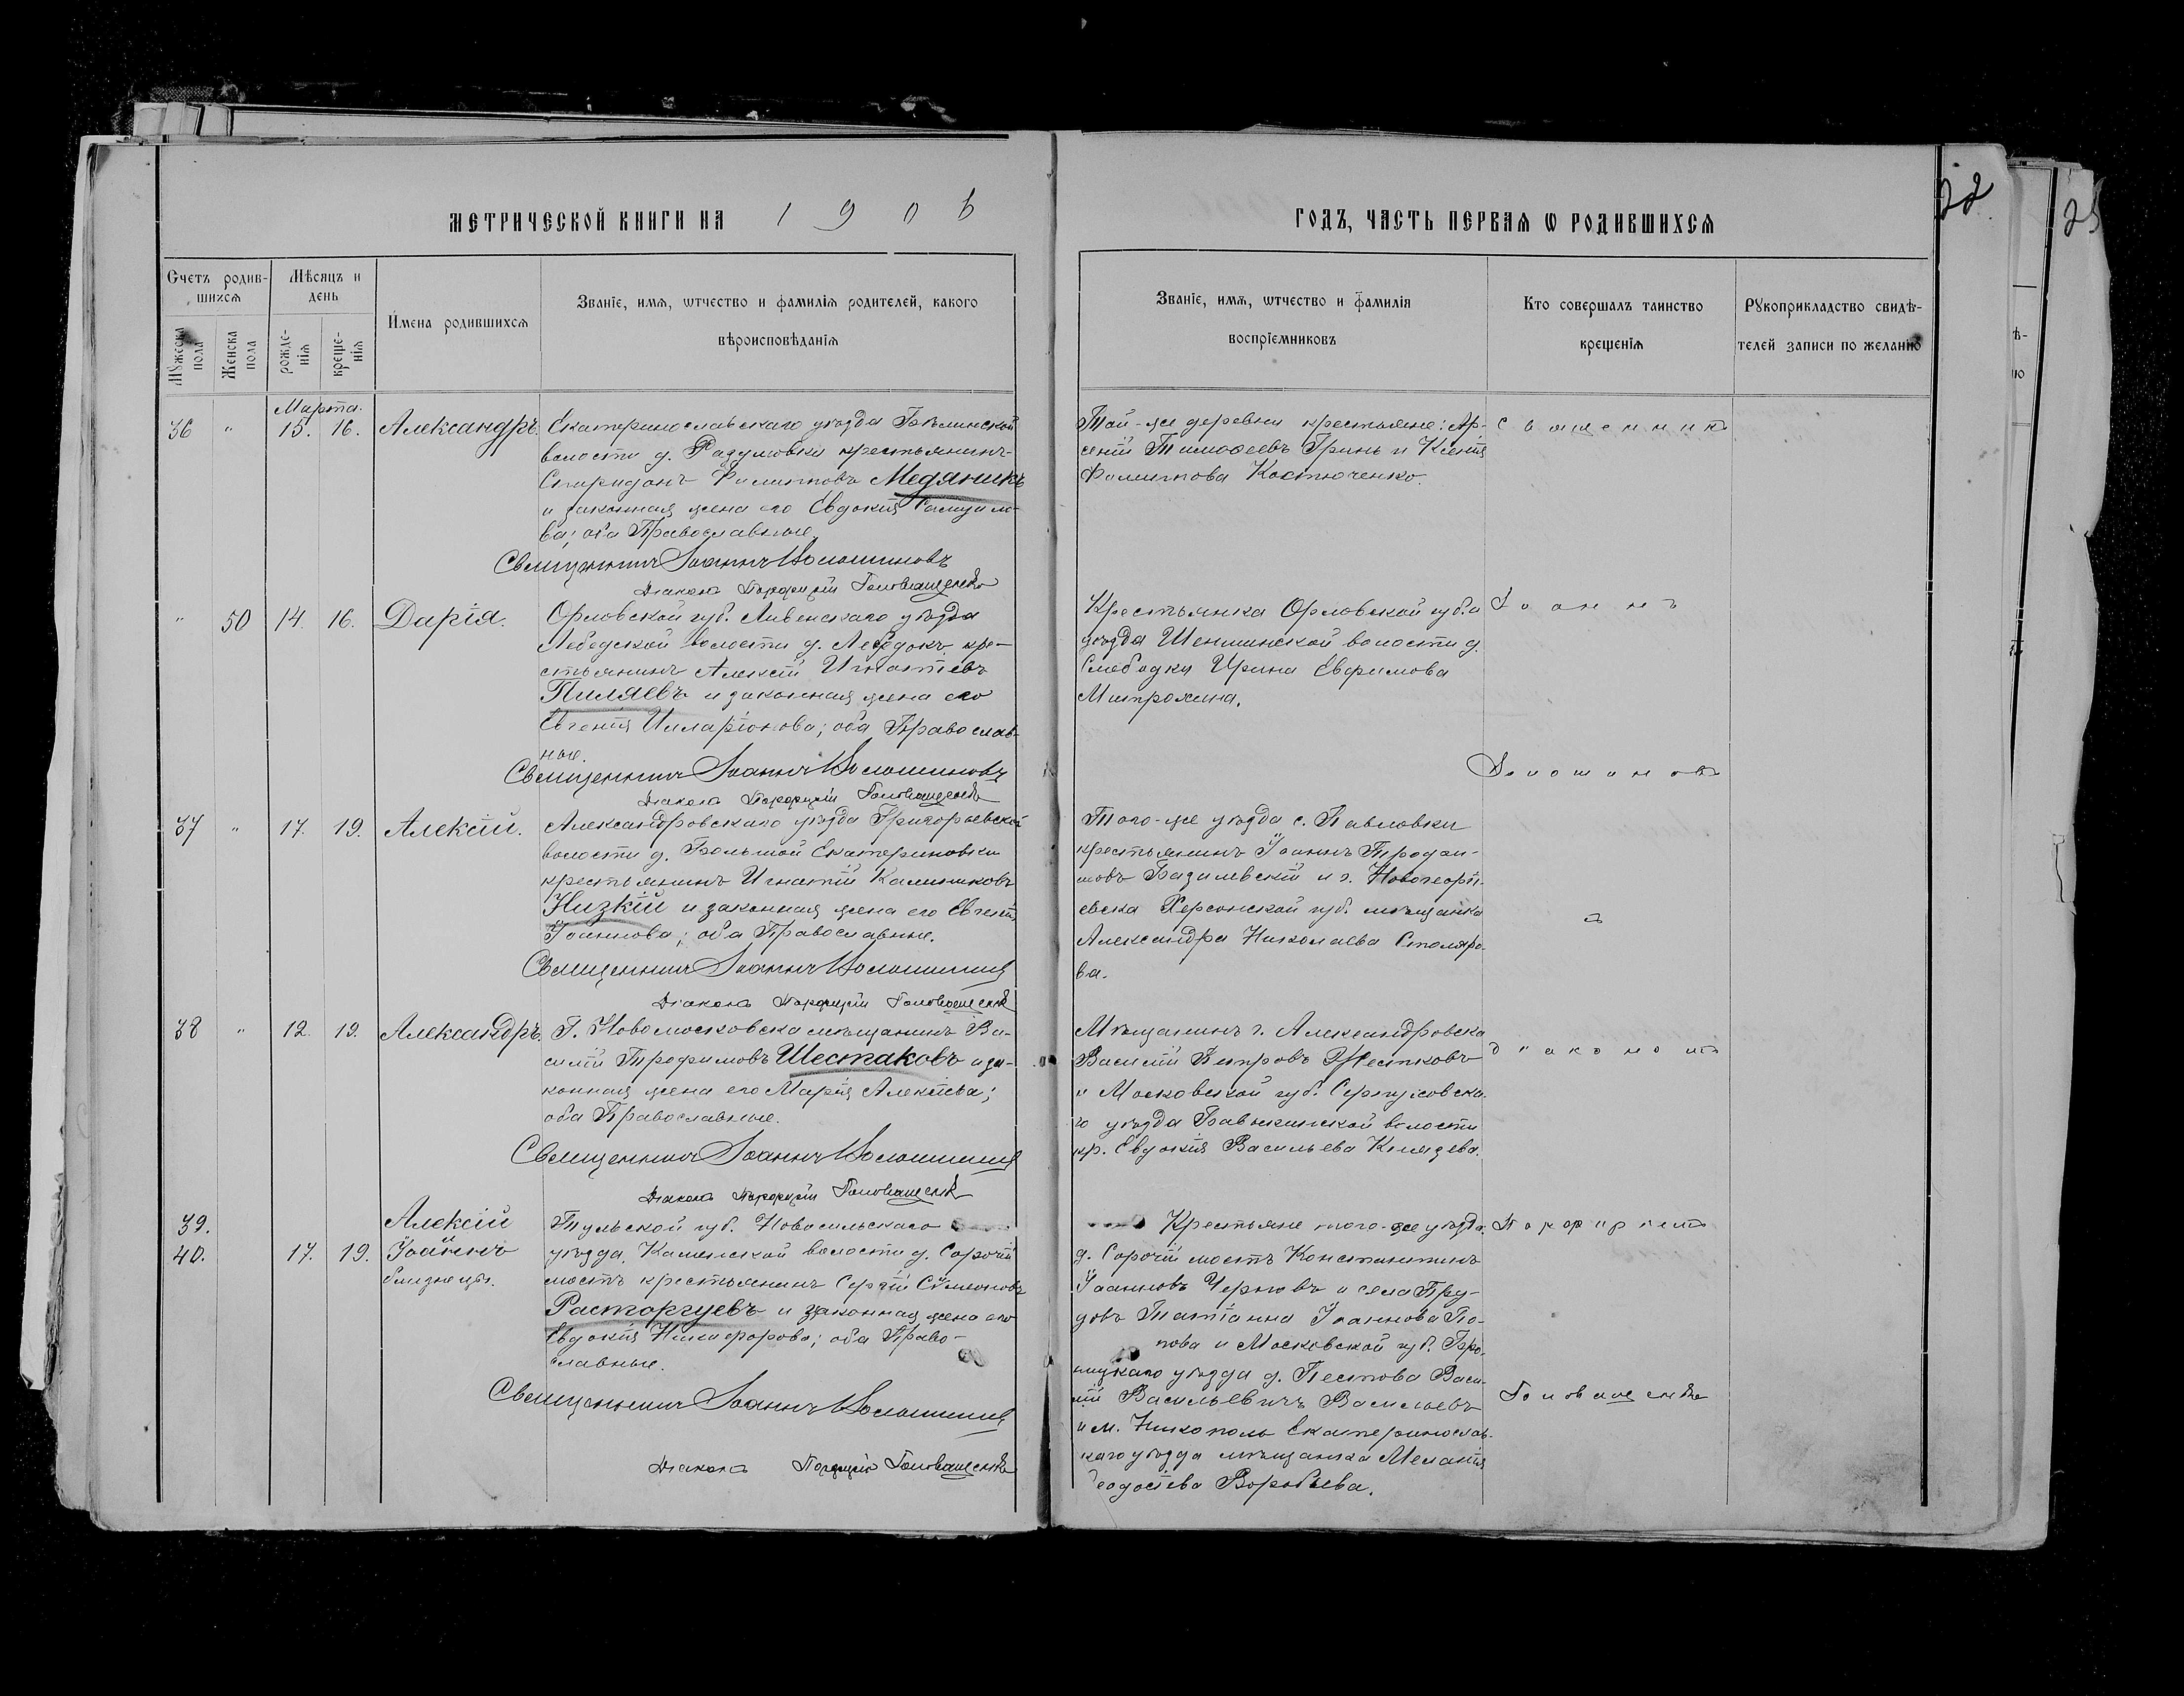 МЕТРИЧЕСКОЙ КНИГИ НА 1906
ГОДЪ, ЧАСТЬ ПЕРВАЯ Ѡ РОДИВШИХСЯ
22
25
Счетъ родив-
шихся
Мѣсяцъ и
день
Мꙋжеска
пола
Женска
пола
рожде-
нія
креще-
нія
Имена родившихся
Званіе, имя, ѡтчество и фамилія родителей, какого
вѣроисповѣданія
Званіе, имя, ѡтчество и фамилія
воспріемниковъ
Кто совершалъ таинство
крещенія
Рꙋкоприкладство свидѣ-
телей записи по желанію
Марта.
36 " 15. 16. Александръ.
Екатеринославскаго уѣзда Бѣленской
волости д. Разумовки крестьянинъ
Спиридонъ Филиповъ Медяникъ
и законная жена его Евдокія
ва; оба Православные.
Священникъ Іоаннъ Волошиновъ
Діаконъ Порфирій Головащенко
Той-же деревни крестьяне: Ар-
сеній Тимофеевъ Гринь и Ксенія
Филиппова Костюченко.
Священникъ
" 50 14. 16. Дарія.
Орловской губ. Ливенскаго уѣзда
Лебедской волости д. Лебедокъ кре-
стьянинъ Алексій Игнатіевъ
Пиляевъ и законная жена его
Евгенія Илларіонова; оба Православ-
ные.
Священникъ Іоаннъ Волошиновъ
Діаконъ Порфирій Головащенко
Крестьянка Орловской губ. и
уѣзда Шеншинской волости д.
Слободки Ирина Евфимова
Митрохина.
Іоаннъ
Волошиновъ
37 " 17. 19. Алексій.
Александровскаго уѣзда Григорьевской
волости д. Большой Екатериновки
крестьянинъ Игнатій Калиниковъ
Низкій и законная жена его Евгенія
Іоаннова; оба Православные.
Священникъ Іоаннъ Волошиновъ
Діаконъ Порфирій Головащенко
Того-же уѣзда с. Павловки
крестьянинъ Іоаннъ
Базилевскій и г. Новогеоргі-
евска Херсонской губ. мѣщанка
Александра Николаева Столяро-
ва.
съ
38 " 12. 19. Александръ.
Г. Новомосковска мѣщанинъ Ва-
силій Трофимовъ Шестаковъ и за-
конная жена его Марія Алексіева;
оба Православные.
Священникъ Іоаннъ Волошиновъ
Діаконъ Порфирій Головащенко
Мѣщанинъ г. Александровска
Василій Петровъ
и Московской губ. Серпуховска-
го уѣзда Бавыкинской волости
кр. Евдокія Васильева Князева.
діакономъ
39. Алексій
40. 17. 19. Іоаннъ
близнецы.
Тульской губ. Новосильскаго
уѣзда, Каменской волости д. Сорочій
мостъ крестьянинъ Сергій Сѵмеоновъ
Расторгуевъ и законная жена его
Евдокія Никифорова; оба Право-
славные.
Священникъ Іоаннъ Волошиновъ
Діаконъ Порфирій Головащенко
Крестьяне того-же уѣзда
д. Сорочій мостъ Константинъ
Іоанновъ Черновъ и села Пру-
довъ Татіанна Іоаннова По-
пова и Московской губ. Бро-
ницкаго уѣзда д. Пестова Васи-
лій Васильевичъ Васильевъ
и м. Никополь Екатеринослав-
скаго уѣзда мѣщанка Меланія
Ѳеодосіева Воробьева.
Порфиріемъ
Головащенко